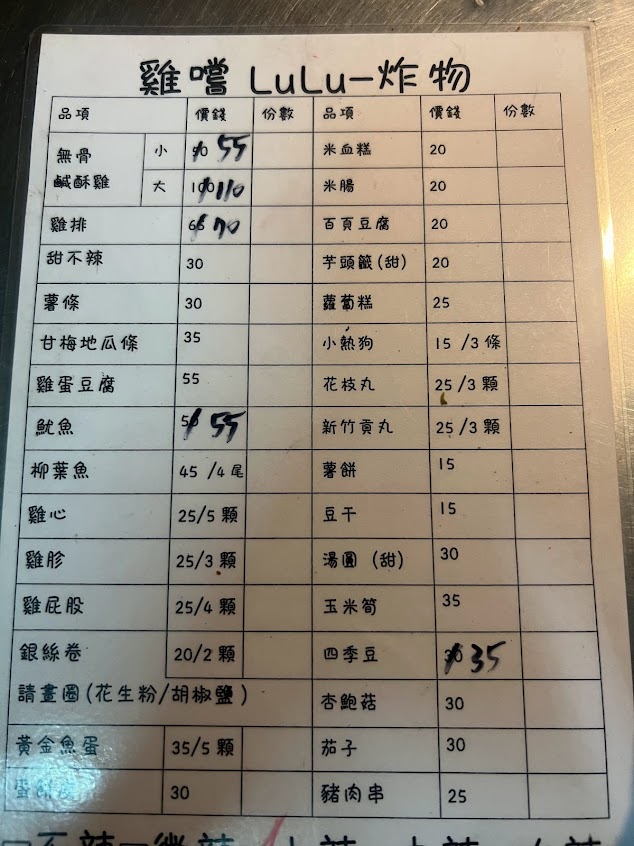 雞嚐 LuLu-炸物
品項 價錢 份數 品項 價錢 份數
無骨鹹酥雞 小 55 米血糕 20
大 100 110 米腸 20
雞排 65 70 百頁豆腐 20
甜不辣 30 芋頭籤(甜) 20
薯條 30 蘿蔔糕 25
甘梅地瓜條 35 小熱狗 15 /3 條
雞蛋豆腐 55 花枝丸 25 /3 顆
魷魚 55 新竹貢丸 25 /3 顆
柳葉魚 45 /4 尾 薯餅 15
雞心 25/5 顆 豆干 15
雞胗 25/3 顆 湯圓 (甜) 30
雞屁股 25/4 顆 玉米筍 35
銀絲卷 20/2 顆 四季豆 30 35
請畫圈(花生粉/胡椒鹽) 杏鮑菇 30
黃金魚蛋 35/5 顆 茄子 30
30 豬肉串 25